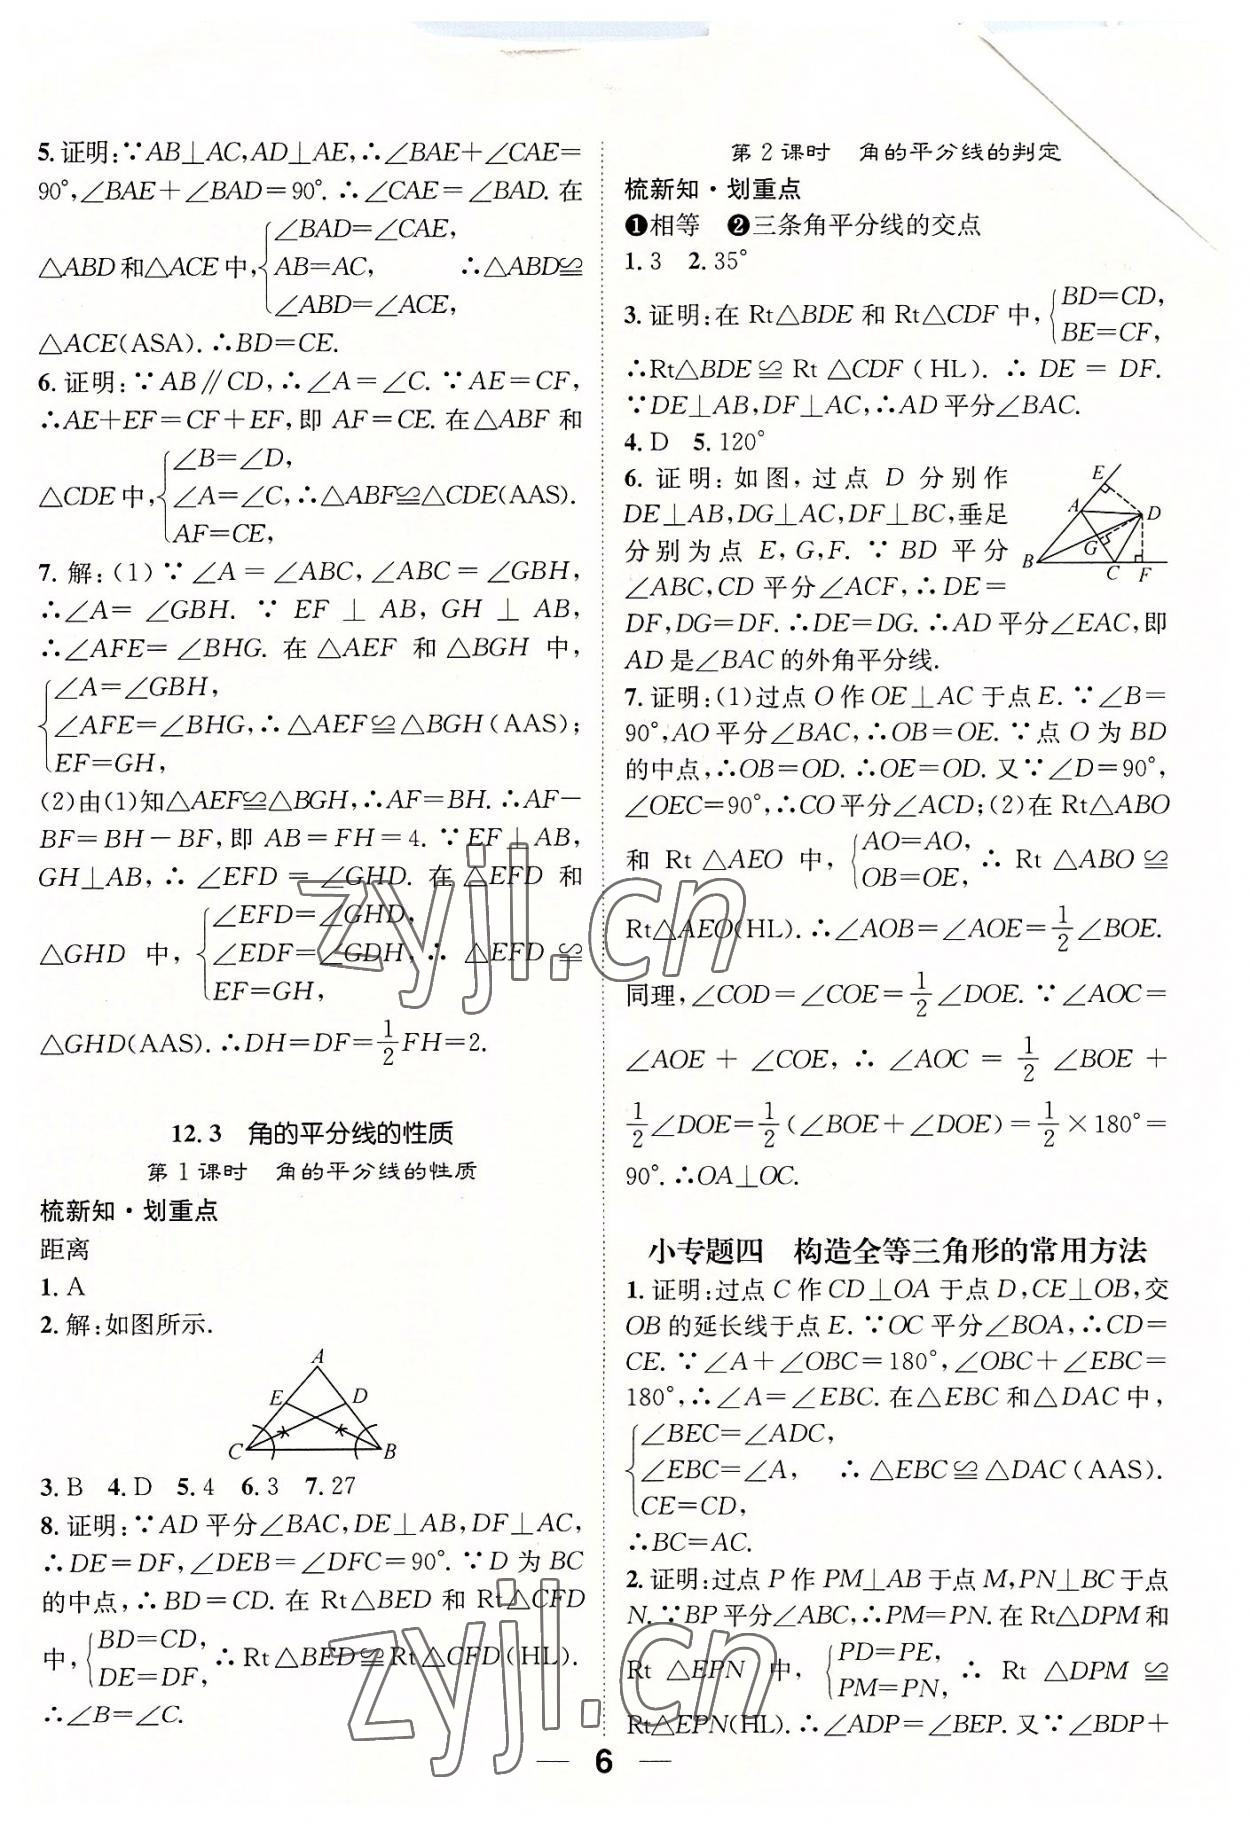 5.证明:∵AB⊥AC,AD⊥AE,∴∠BAE+∠CAE=
90°,∠BAE+∠BAD=90°.∴∠CAE=∠BAD.在
△ABD和△ACE中,{∠BAD=∠CAE,
AB=AC,
∠ABD=∠ACE,
∴△ABD≌
△ACE(ASA).∴BD=CE.
6.证明:∵AB∥CD,∴∠A=∠C.∵AE=CF,
∴AE+EF=CF+EF,即AF=CE.在△ABF和
△CDE中,{∠B=∠D,
∠A=∠C,
AF=CE,
∴△ABF≌△CDE(AAS).
7.解:(1)∵∠A=∠ABC,∠ABC=∠GBH,
∴∠A=∠GBH.∵EF⊥AB,GH⊥AB,
∴∠AFE=∠BHG.在△AEF和△BGH中,
{∠A=∠GBH,
∠AFE=∠BHG,∴△AEF≌△BGH(AAS);
EF=GH,
(2)由(1)知△AEF≌△BGH,∴AF=BH.∴AF-
BF=BH-BF,即AB=FH=4.∵EF⊥AB,
GH⊥AB,∴∠EFD=∠GHD.在△EFD和
△GHD中,{∠EFD=∠GHD,
∠EDF=∠GDH,
EF=GH,
∴△EFD≌
△GHD(AAS).∴DH=DF=1/2FH=2.
12.3 角的平分线的性质
第1课时 角的平分线的性质
梳新知·划重点
距离
1.A
2.解:如图所示.
A
E D
C B
3.B 4.D 5.4 6.3 7.27
8.证明:∵AD平分∠BAC,DE⊥AB,DF⊥AC,
∴DE=DF,∠DEB=∠DFC=90°.∵D为BC
的中点,∴BD=CD.在Rt△BED和Rt△CFD
中,{BD=CD,
DE=DF,
∴Rt△BED≌Rt△CFD(HL).
∴∠B=∠C.
第2课时 角的平分线的判定
梳新知·划重点
❶相等 ❷三条角平分线的交点
1.3 2.35°
3.证明:在Rt△BDE和Rt△CDF中,{BD=CD,
BE=CF,
∴Rt△BDE≌Rt△CDF(HL).∴DE=DF.
∵DE⊥AB,DF⊥AC,∴AD平分∠BAC.
4.D 5.120°
6.证明:如图,过点D分别作
DE⊥AB,DG⊥AC,DF⊥BC,垂足
分别为点E,G,F.∵BD平分
∠ABC,CD平分∠ACF,∴DE=
DF,DG=DF.∴DE=DG.∴AD平分∠EAC,即
AD是∠BAC的外角平分线.
E
A D
G
B C F
7.证明:(1)过点O作OE⊥AC于点E.∵∠B=
90°,AO平分∠BAC,∴OB=OE.∵点O为BD
的中点,∴OB=OD.∴OE=OD.又∵∠D=90°,
∠OEC=90°,∴CO平分∠ACD;(2)在Rt△ABO
和Rt△AEO中,{AO=AO,
OB=OE,
∴Rt△ABO≌
Rt△AEO(HL).∴∠AOB=∠AOE=1/2∠BOE.
同理,∠COD=∠COE=1/2∠DOE.∵∠AOC=
∠AOE+∠COE,∴∠AOC=1/2∠BOE+
1/2∠DOE=1/2(∠BOE+∠DOE)=1/2×180°=
90°.∴OA⊥OC.
小专题四 构造全等三角形的常用方法
1.证明:过点C作CD⊥OA于点D,CE⊥OB,交
OB的延长线于点E.∵OC平分∠BOA,∴CD=
CE.∵∠A+∠OBC=180°,∠OBC+∠EBC=
180°,∴∠A=∠EBC.在△EBC和△DAC中,
{∠BEC=∠ADC,
∠EBC=∠A, ∴△EBC≌△DAC(AAS).
CE=CD,
∴BC=AC.
2.证明:过点P作PM⊥AB于点M,PN⊥BC于点
N.∵BP平分∠ABC,∴PM=PN.在Rt△DPM和
Rt△EPN中,{PD=PE,
PM=PN,
∴Rt△DPM≌
Rt△EPN(HL).∴∠ADP=∠BEP.又∵∠BDP+
— 6 —
zyjl.cn
zyjl.cn